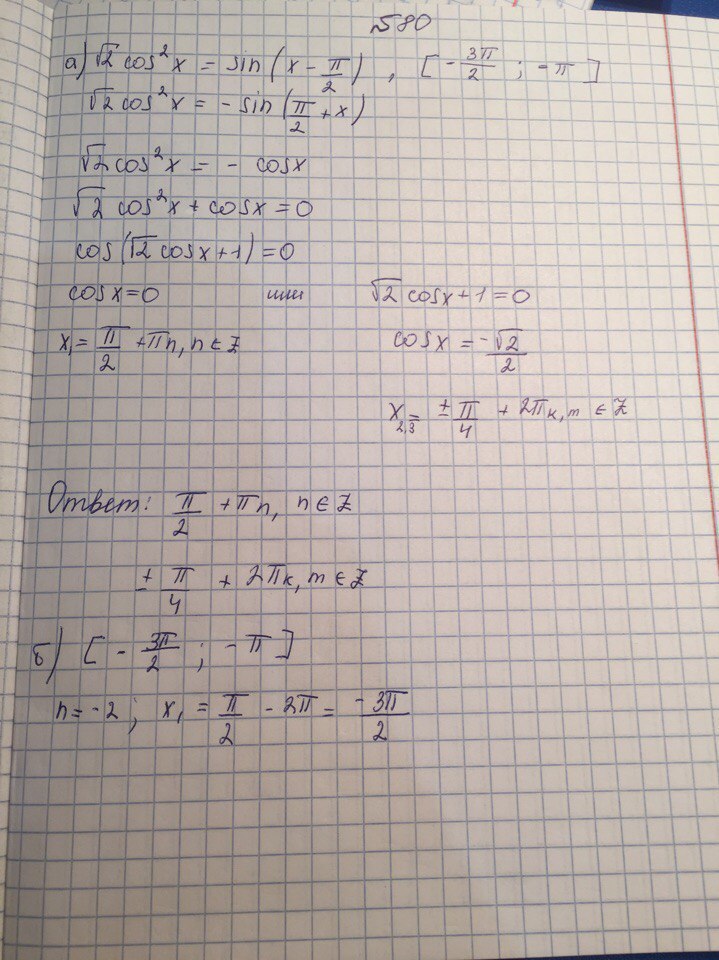 №580
а) √2 cos²x = sin(x - π/2) , [-3π/2 ; -π]
√2 cos²x = - sin(π/2 + x)
√2 cos²x = - cosx
√2 cos²x + cosx = 0
cos(√2 cosx + 1) = 0
cosx = 0 или √2 cosx + 1 = 0
x₁ = π/2 + πn, n ∈ Z cosx = -√2/2
x₂,₃ = ± π/4 + 2πк, m ∈ Z
Ответ: π/2 + πn, n ∈ Z
± π/4 + 2πк, m ∈ Z
б) [-3π/2 ; -π]
n = -2 ; x₁ = π/2 - 2π = -3π/2